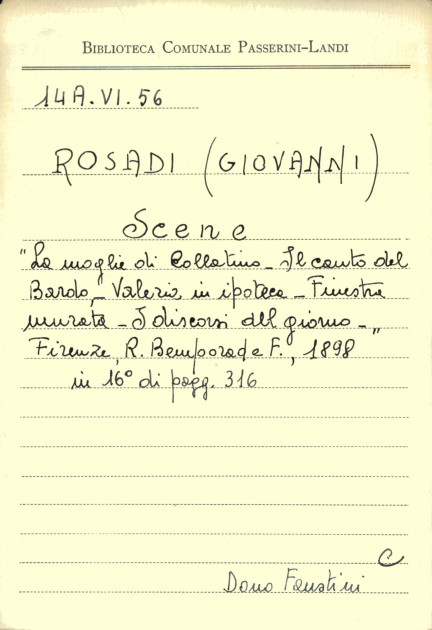 BIBLIOTECA COMUNALE PASSERINI-LANDI
14A.VI.56
ROSADI (GIOVANNI)
Scene
"La moglie di Collatino - Il canto del
Bardo - Valeria in ipoteca - Finestra
murata - I discorsi del giorno - "
Firenze, R. Bemporad e F., 1898
in 16° di pagg. 316
C
Dono Faustini